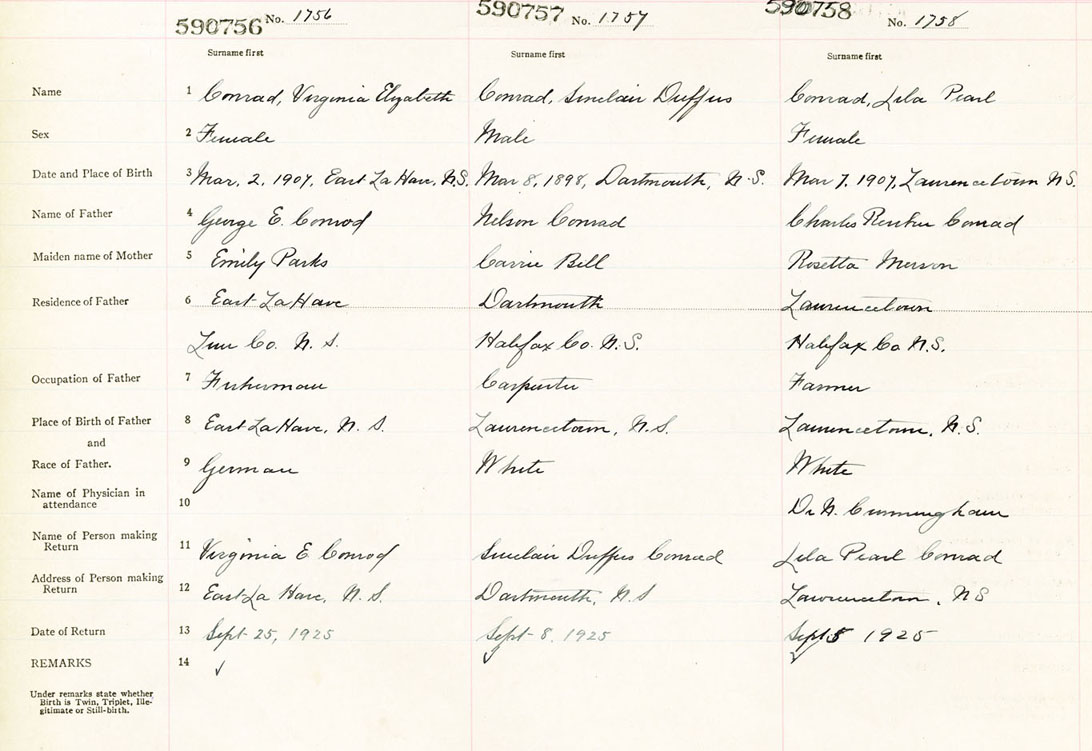 590756 No. 1756 590757 No. 1757 590758 No. 1758
Surname first Surname first Surname first
Name 1 Conrad, Virginia Elizabeth Conrad, Sinclair Duffus Conrad, Lila Pearl
Sex 2 Female Male Female
Date and Place of Birth 3 Mar. 2. 1907, East La Have, N.S. Mar 8, 1898, Dartmouth, N.S. Mar 7. 1907, Lawrencetown N.S.
Name of Father 4 George E. Conrod Nelson Conrad Charles Conrad
Maiden name of Mother 5 Emily Parks Carrie Bell Rosetta
Residence of Father 6 East La Have Dartmouth Lawrencetown
Lun Co. N. S. Halifax Co. N.S. Halifax Co N.S.
Occupation of Father 7 Fisherman Carpenter Farmer
Place of Birth of Father 8 East La Have, N. S. Lawrencetown, N.S. Lawrencetown, N.S.
and
Race of Father. 9 German White White
Name of Physician in
attendance 10 Dr N. Cunningham
Name of Person making
Return 11 Virginia E Conrod Sinclair Duffus Conrad Lila Pearl Conrad
Address of Person making
Return 12 East La Have, N.S. Dartmouth, N.S Lawrencetown, NS
Date of Return 13 Sept 25, 1925 Sept 8. 1925 Sept 8 1925
REMARKS 14
Under remarks state whether
Birth is Twin, Triplet, Ille-
gitimate or Still-birth.